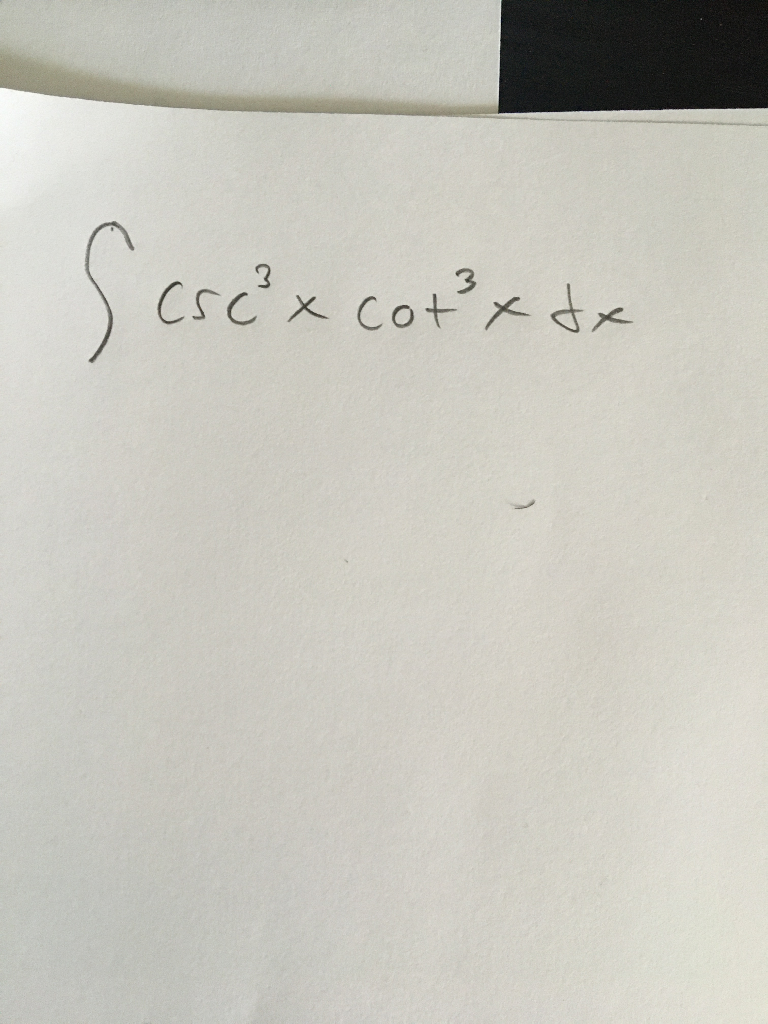 ∫ csc³ x cot³ x dx